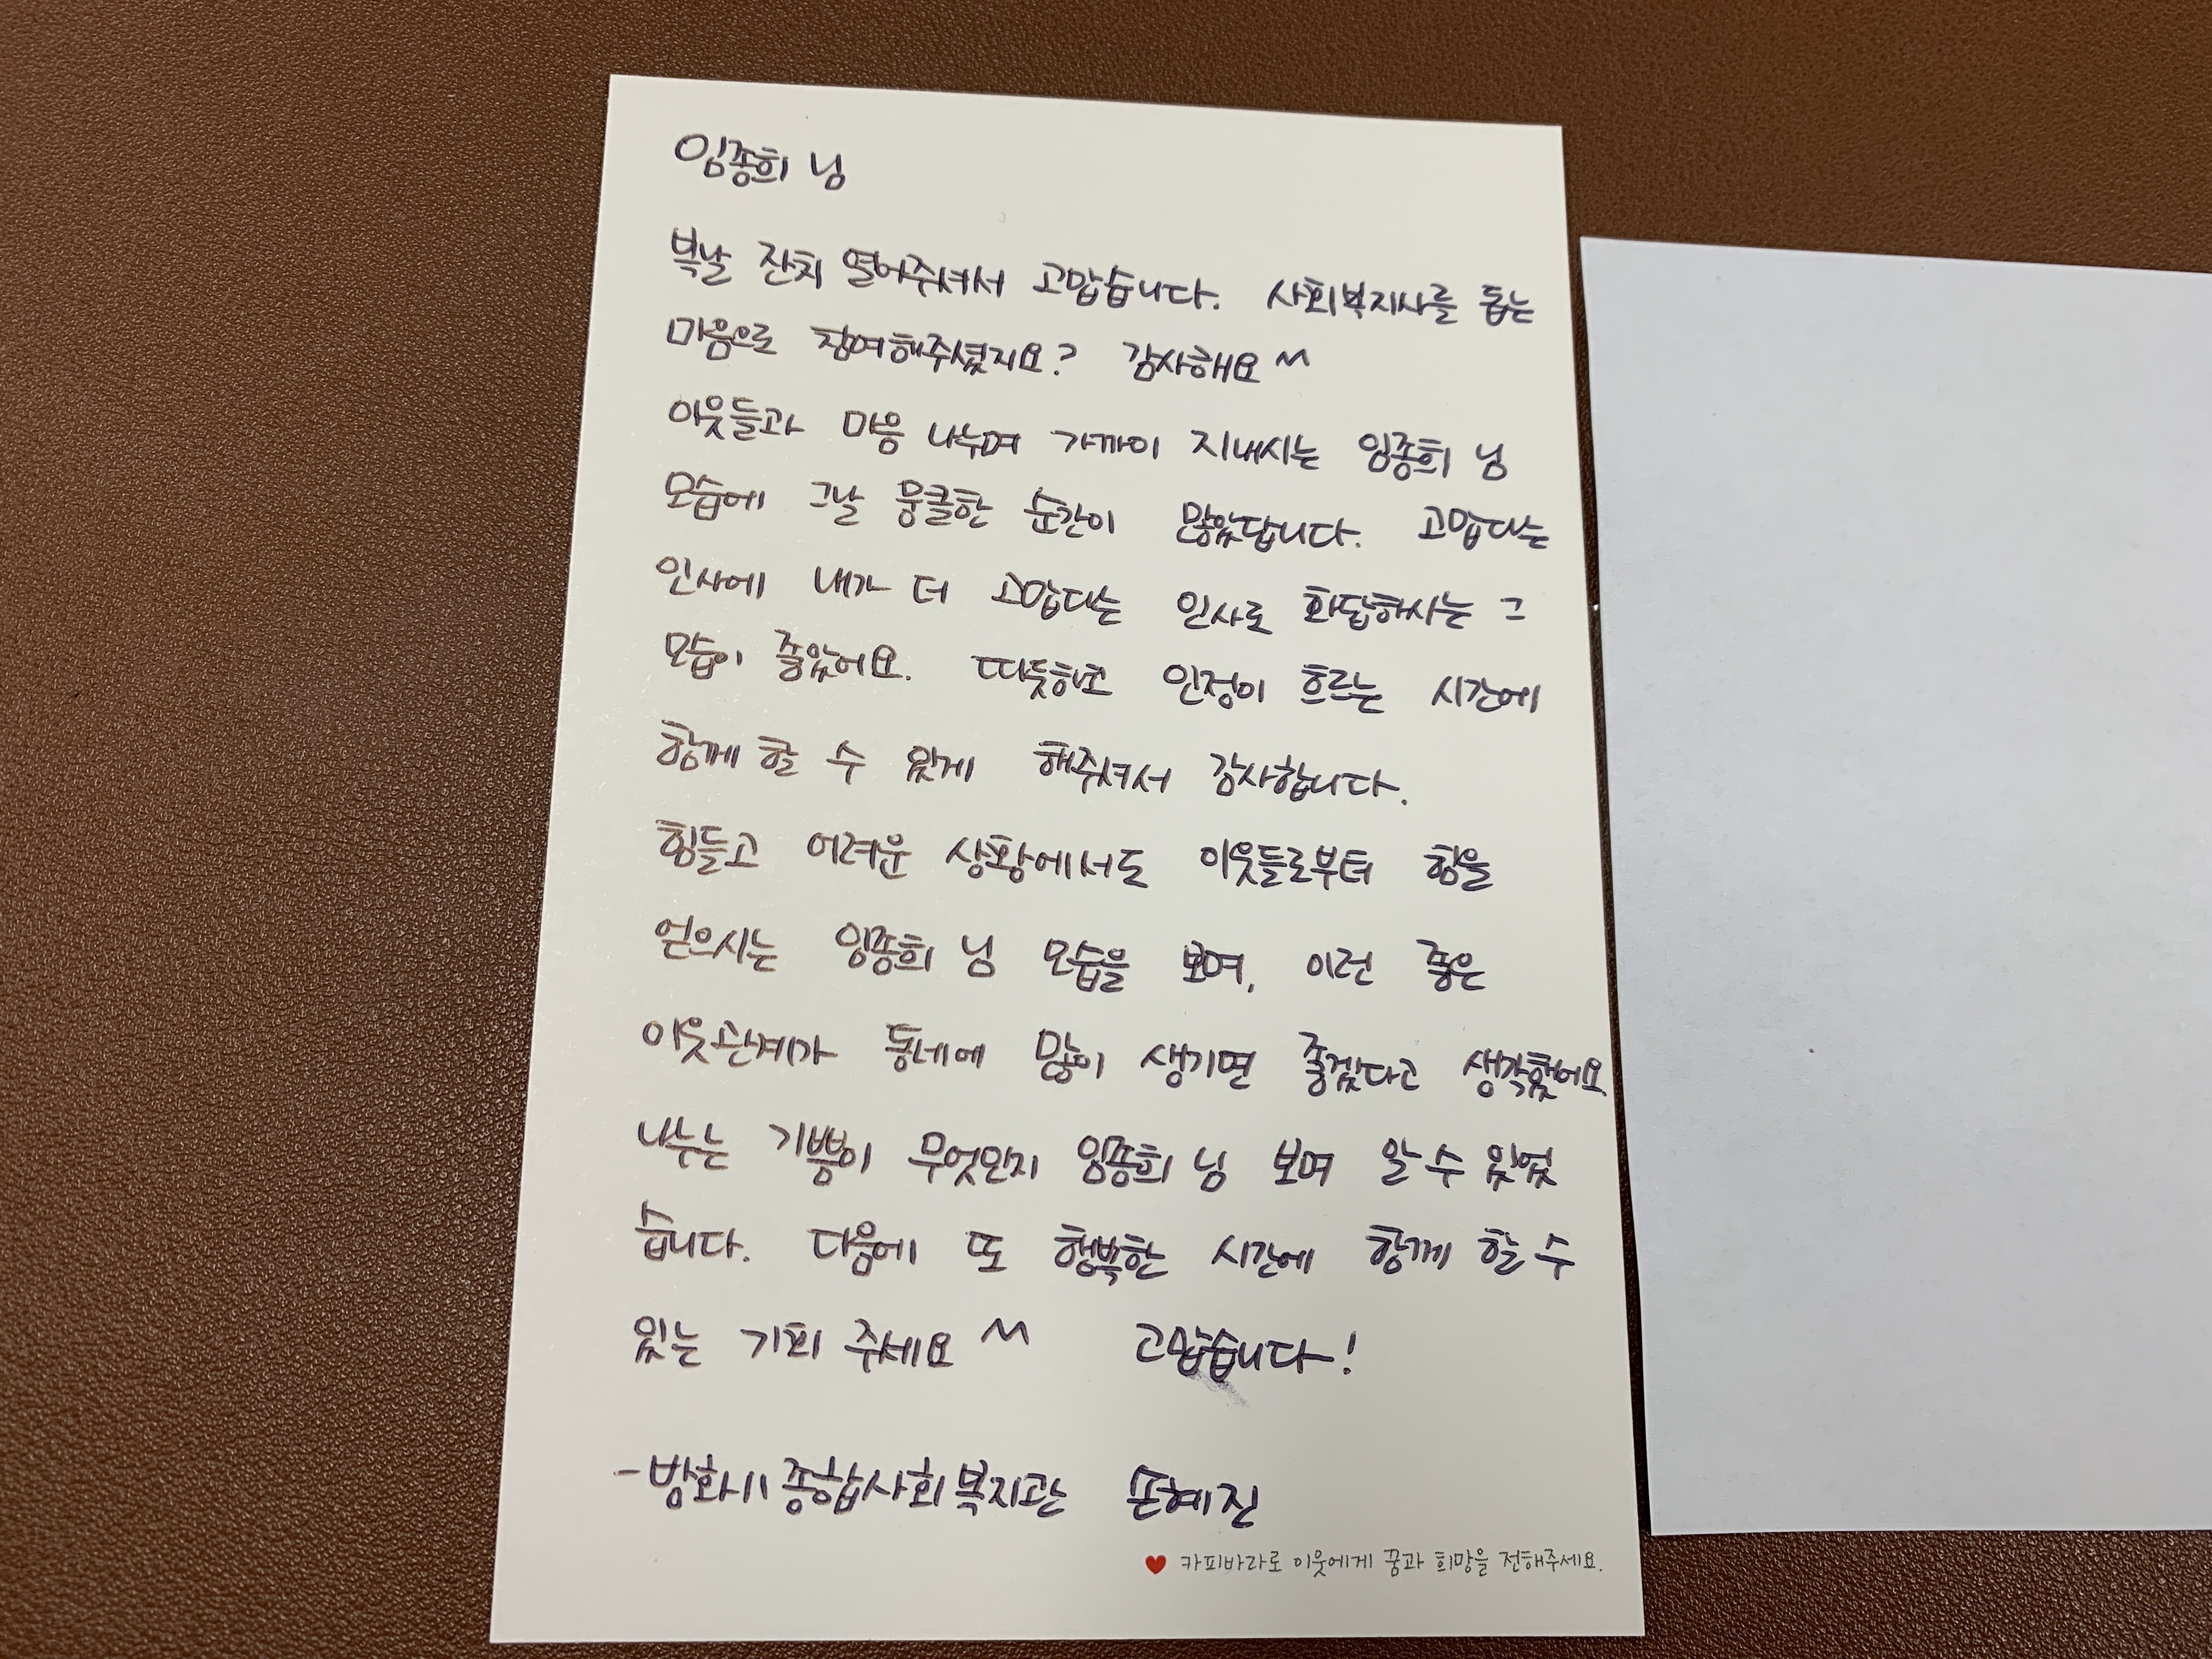 임종희 님
복날 잔치 열어주셔서 고맙습니다. 사회복지사를 돕는
마음으로 참여해주셨지요? 감사해요 ^^
이웃들과 마음 나누며 가까이 지내시는 임종희 님
모습에 그날 뭉클한 순간이 많았답니다. 고맙다는
인사에 내가 더 고맙다는 인사로 화답하시는 그
모습이 좋았어요. 따뜻하고 인정이 흐르는 시간에
함께 할 수 있게 해주셔서 감사합니다.
힘들고 어려운 상황에서도 이웃들로부터 힘을
얻으시는 임종희 님 모습을 보며, 이런 좋은
이웃관계가 동네에 많이 생기면 좋겠다고 생각했어요.
나누는 기쁨이 무엇인지 임종희 님 보며 알 수 있었
습니다. 다음에 또 행복한 시간에 함께 할 수
있는 기회 주세요 ^^ 고맙습니다!
- 방화11종합사회복지관 손혜진
♥ 카피바라로 이웃에게 꿈과 희망을 전해주세요.